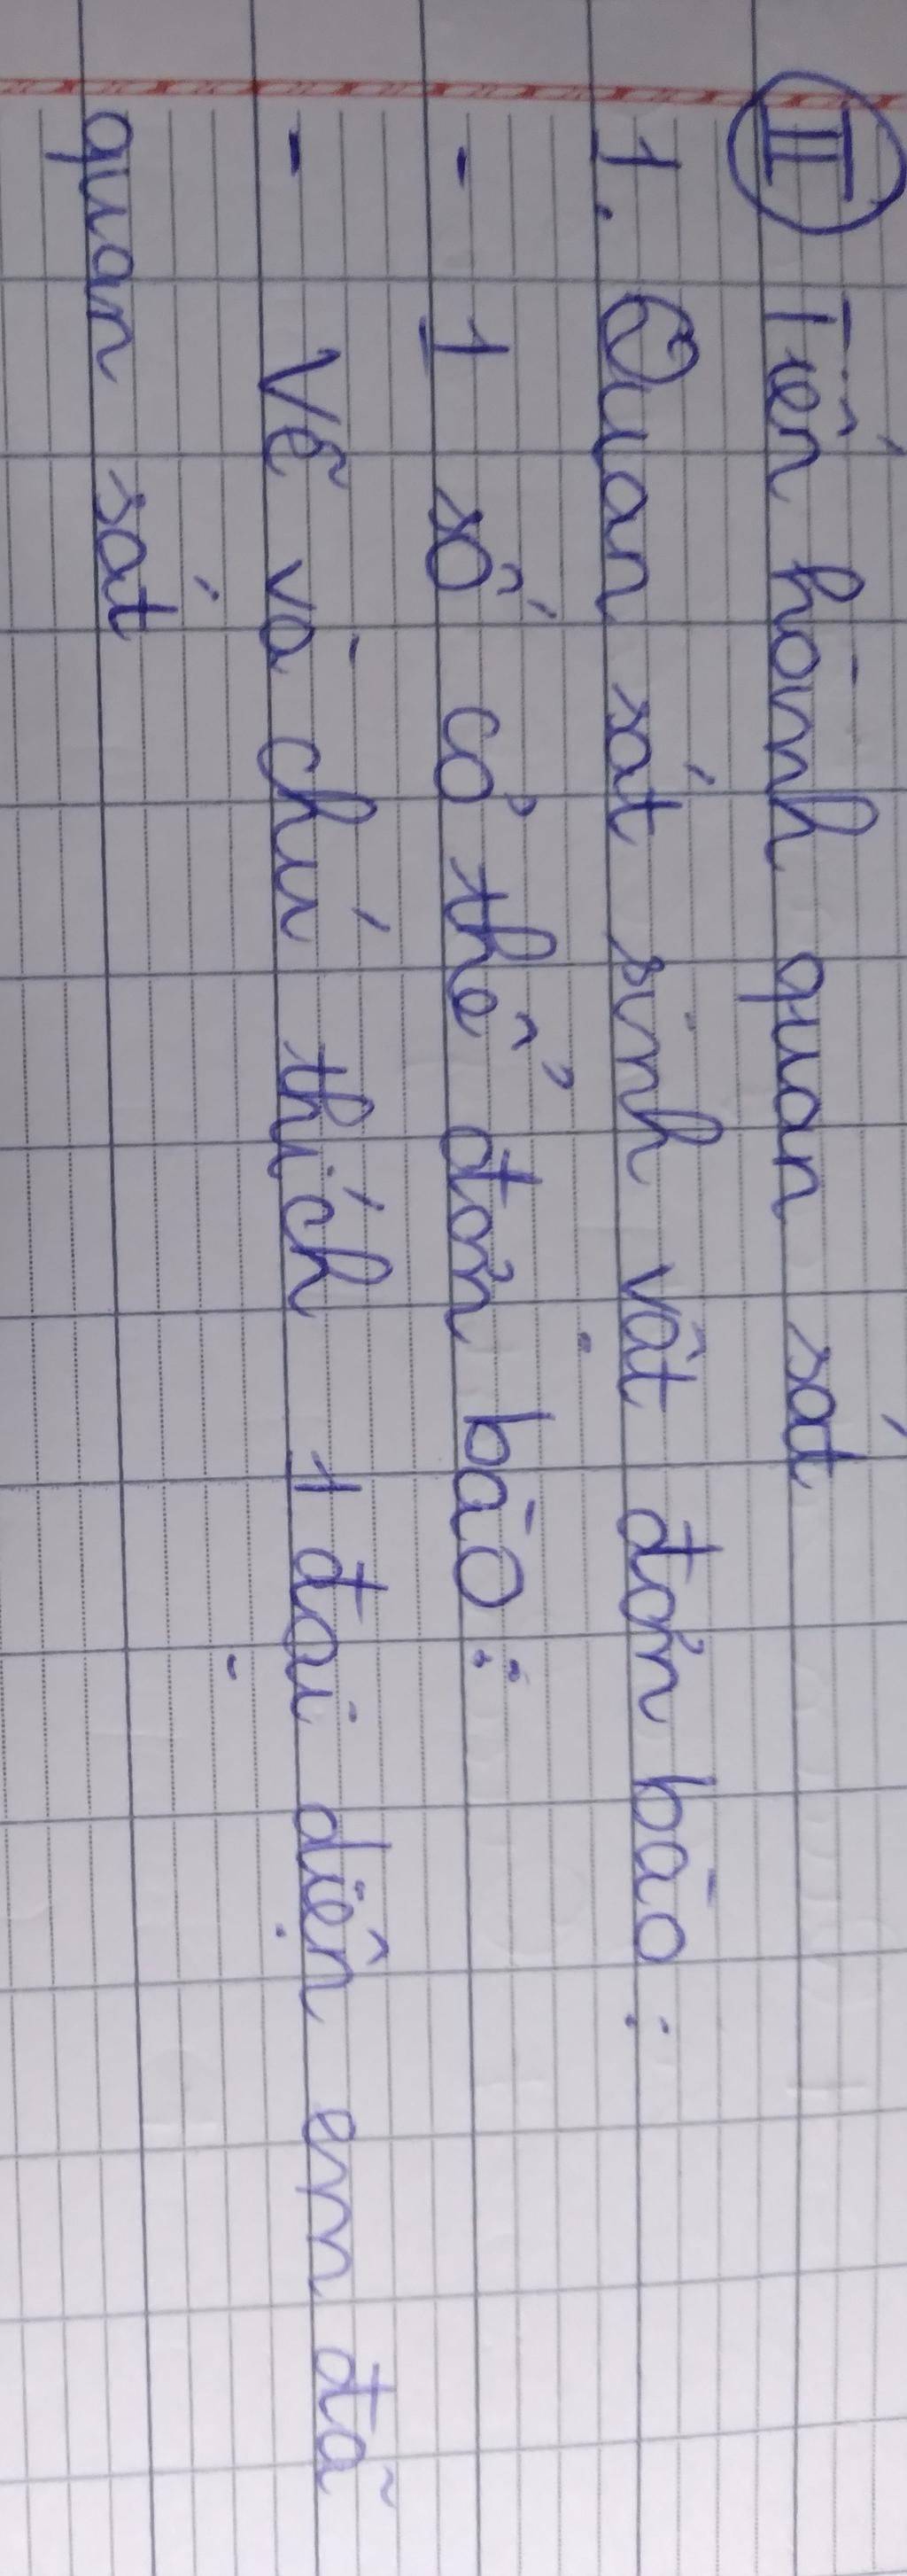 II Tiến hành quan sát
1. Quan sát sinh vật đơn bào :
- 1 số cơ thể đơn bào :
- Vẽ và chú thích 1 đại diện em đã
quan sát